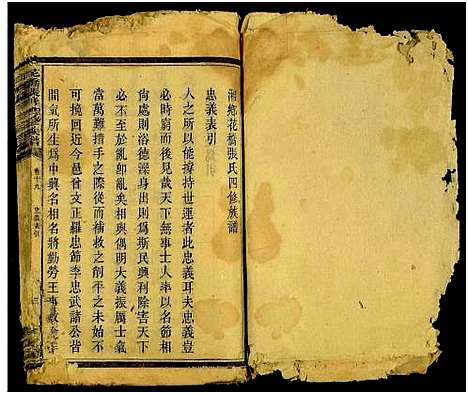 湘鄉花橋張氏四修族譜
忠義表引
人之所以能撐持世運者此忠義耳夫忠義豈
必時窮而後見哉天下無事士人率以名節相
尚處則浴德澡身出則爲斯民興利除害天下
必不至於亂卽亂矣相與偶明大義振厲士氣
當萬難措手之際從而補救之削平之未始不
可挽回近今邑曾文正羅忠節李忠武諸公皆
間氣所生爲中興名相名將勤勞王事
卷十九
忠義表引